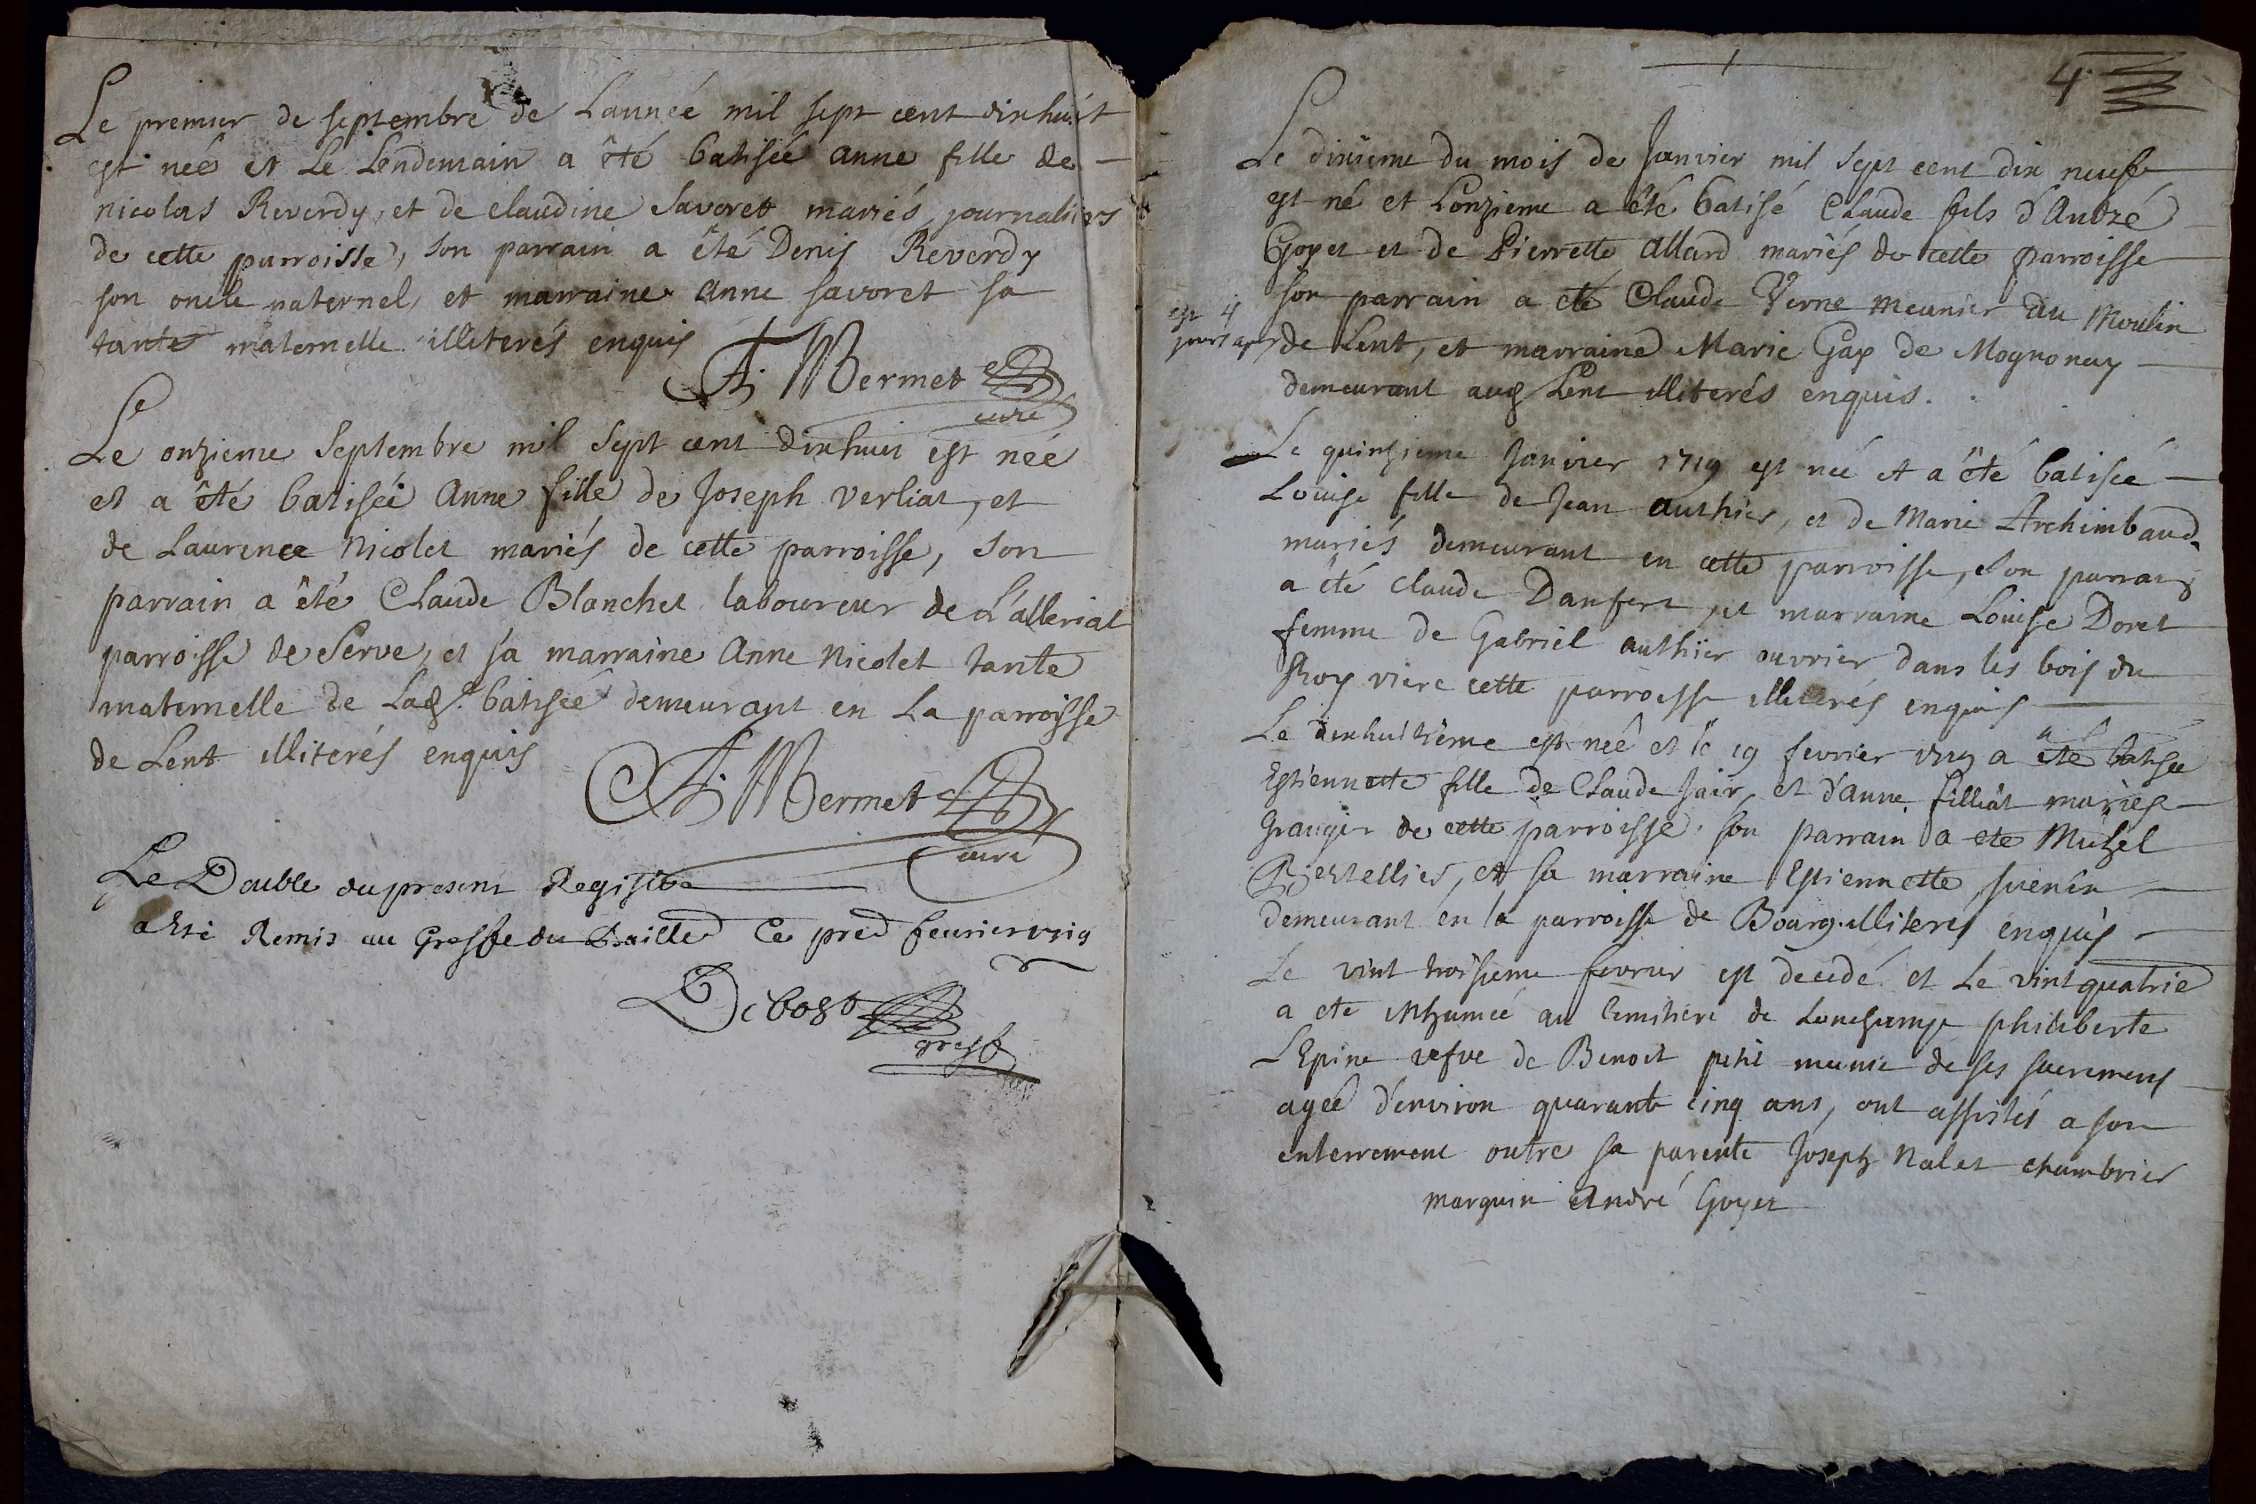 Le premier de septembre de Lannéé mil sept cent dixhuit
est néé et Le Lendemain a êté batiséé anne fille de
nicolas Reverdy, et de claudine Savoret mariés journaliers
de cette parroisse, son parrain a êté Denis Reverdy
son oncle paternel, et marraine anne savoret sa
tante maternelle illiterés enquis
Mermet
curé
Le onzieme Septembre mil sept cent dixhuit est néé
et a êté batiséé anne fille de Joseph verliat, et
de Laurence Nicolet mariés de cette parroisse, son
parrain a êté Claude Blanchet laboureur de
parroisse de Serve, et sa marraine anne Nicolet tante
maternelle de Lad. batiséé demeurant en La parroisse
de Lent illiterés enquis
Mermet
curé
Le Double du present Registre
a Eté Remis au Greffe du Baille Ce pre fevrier 1719
Debost
greff
4
Le dixieme du mois de Janvier mil sept cent dix neuf
est né et Lonzieme a êté batisé Claude fils d'André
Goyet et de Pierrette allard mariés de cette parroisse
son parrain a eté Claude Verne meunier du Moulin
est 4
jours apres
de Lent, et marraine Marie Gay de Mognonay
demeurant aud Lent illiterés enquis.
Le quinzieme Janvier 1719 est néé et a êté batiséé
Louise fille de Jean authier, et de Marie Archimbaud
mariés demeurant en cette parroisse, son parrain
a êté Claude Danfert, et marraine Louise Doret
femme de Gabriel authier ouvrier dans les bois du
Roy riere cette parroisse illiterés enquis
Le dixhuitième est néé et le 19 fevrier 1719 a été batisée
Estiennette fille de Claude Jair, et d'anne filliat mariés
Granger de cette parroisse, son parrain a ete Michel
et sa marraine Estiennette
demeurant en la parroisse de Bourg illiterés enquis
Le vint troisieme fevrier est decedé et Le vintquatrie
a ete inhuméé au Cimitiere de Lonchamp philiberte
L'Epine vefve de Benoit petit munie de ses sacremens
agéé d'environ quarante cinq ans, ont assistés a son
enterrement outre sa parente Joseph Nalet chambrier
marguin André Goyet